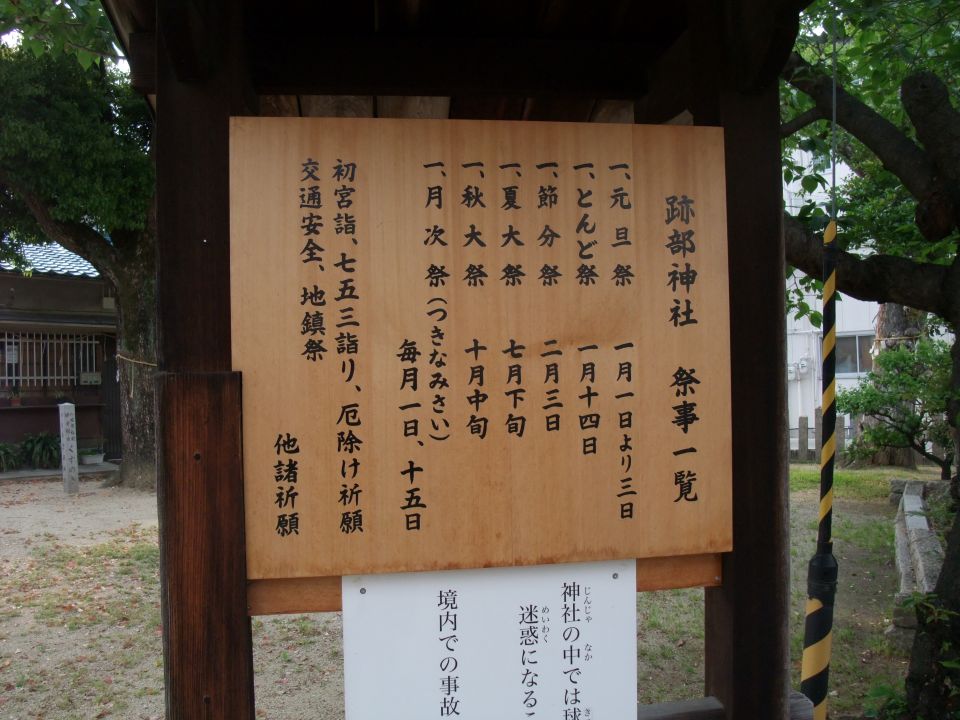 跡部神社　祭事一覧
一、元旦祭　一月一日より三日
一、とんど祭　一月十四日
一、節分祭　二月三日
一、夏大祭　七月下旬
一、秋大祭　十月中旬
一、月次祭（つきなみさい）
毎月一日、十五日
初宮詣、七五三詣り、厄除け祈願
交通安全、地鎮祭
他諸祈願
神社の中では球
じんじゃ　なか
迷惑になるこ
めいわく
境内での事故